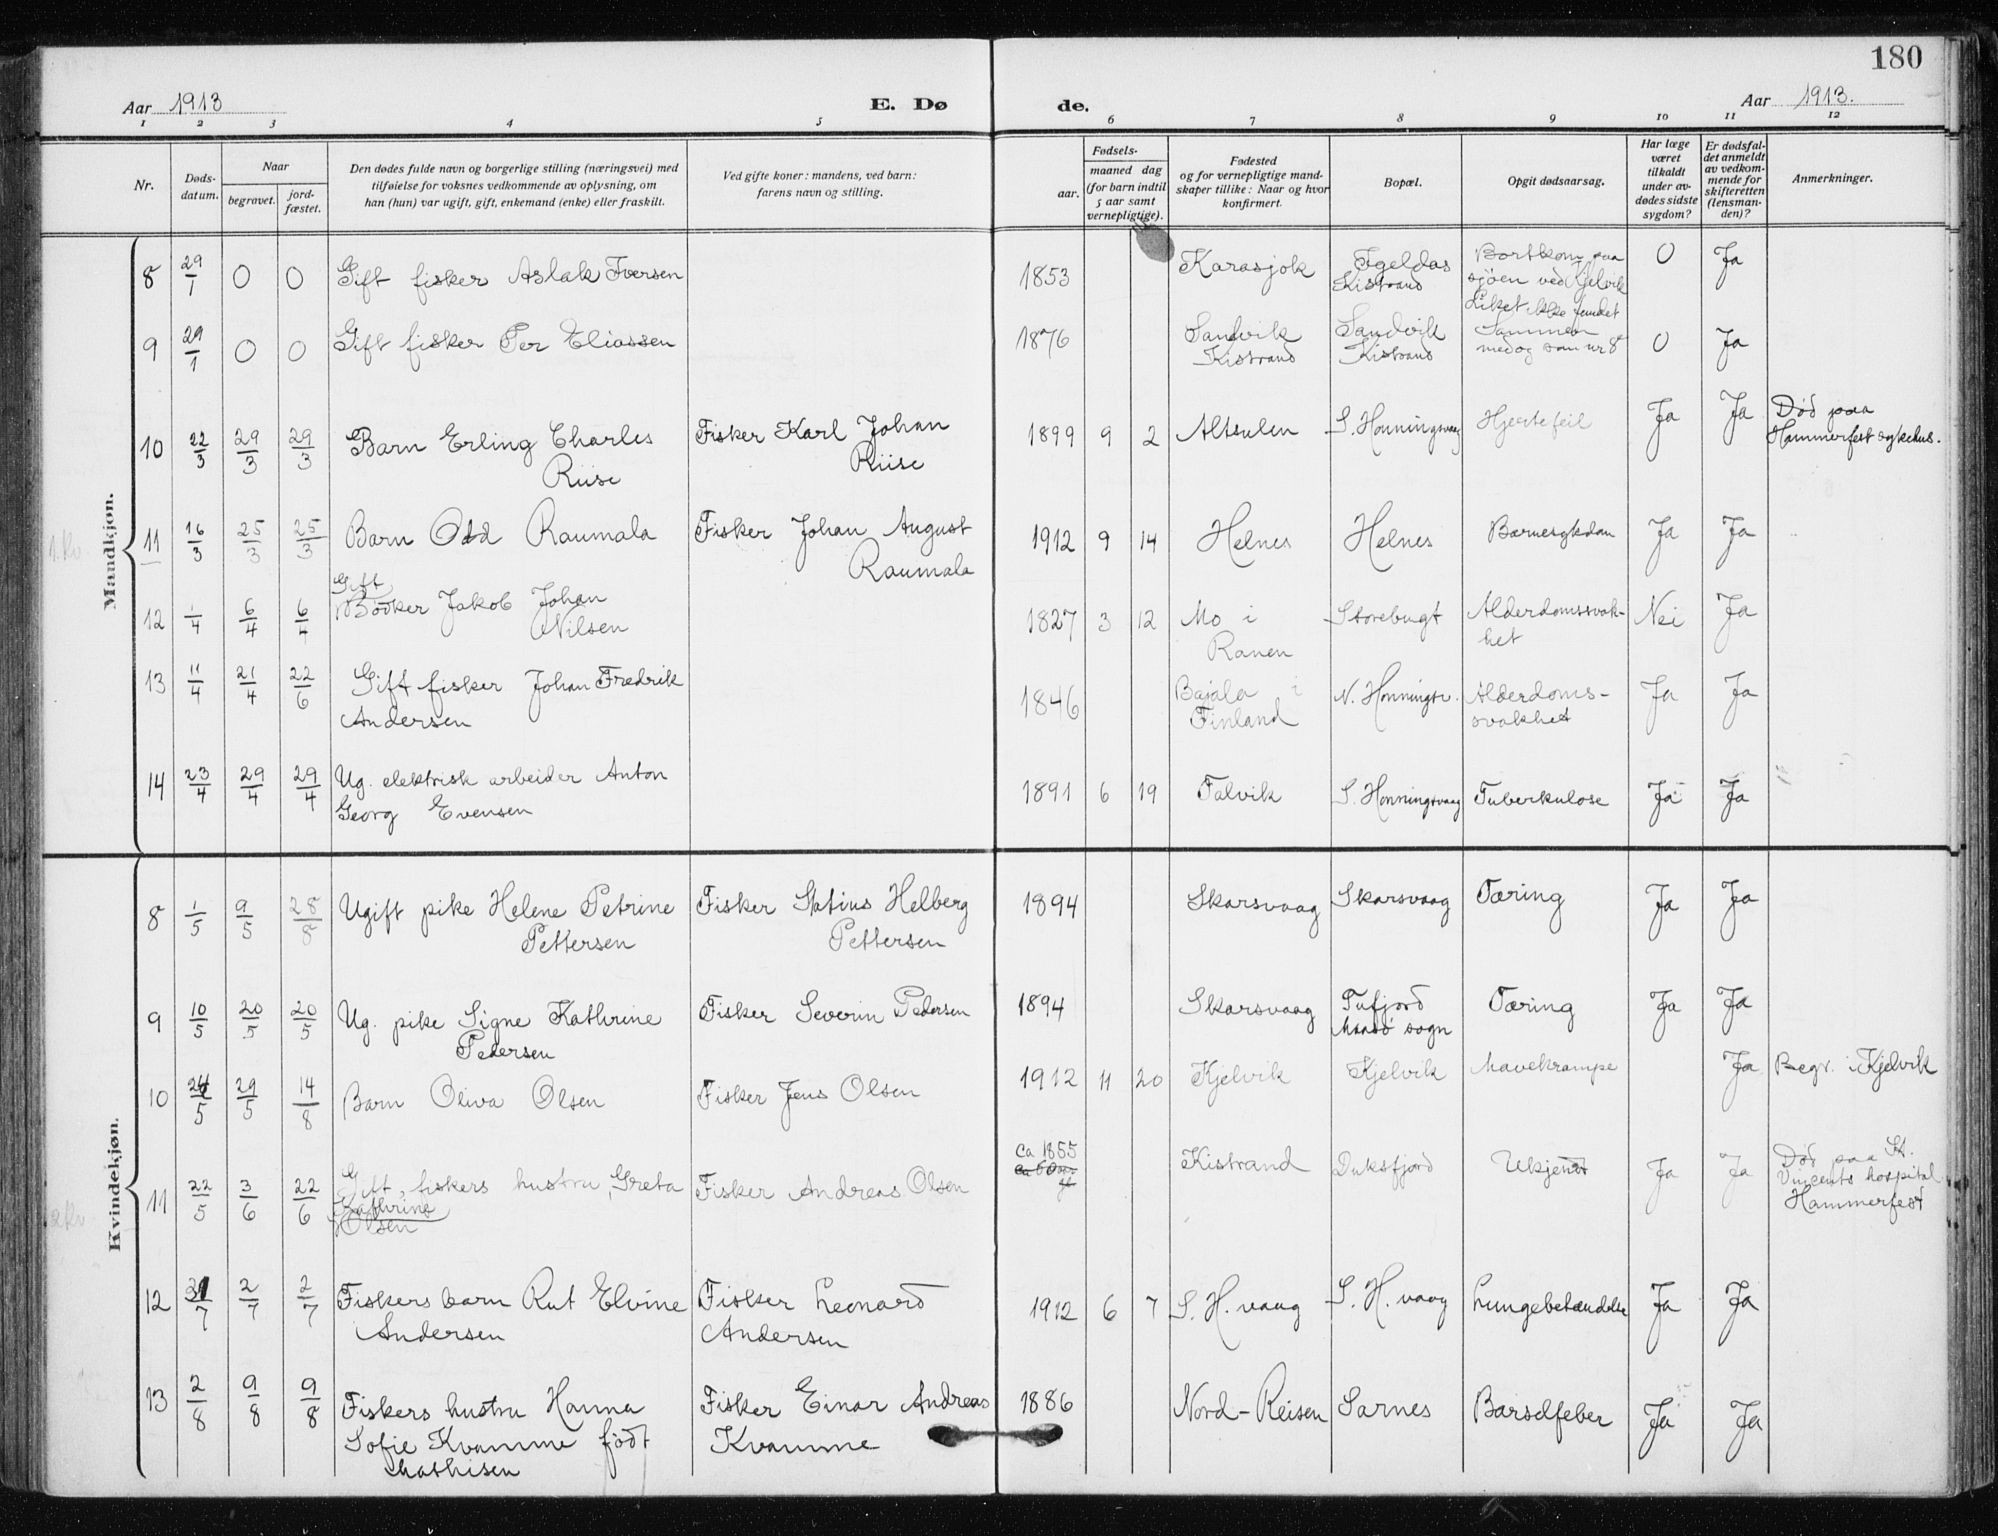 180
Aar 1913
E. Dø
de.
Aar 1913.
1 2 3 4 5 6 7 8 9 10 11 12
Nr.
Døds-
datum.
Naar
begravet.
jord-
fæstet.
Den dødes fulde navn og borgerlige stilling (næringsvei) med
tilføielse for voksnes vedkommende av oplysning, om
han (hun) var ugift, gift, enkemand (enke) eller fraskilt.
Ved gifte koner: mandens, ved barn:
farens navn og stilling.
Fødsels-
aar.
maaned dag
(for barn indtil
5 aar samt
vernepligtige).
Fødested
og for vernepligtige mand-
skaper tillike: Naar og hvor
konfirmert.
Bopæl.
Opgit dødsaarsag.
Har læge
været
tilkaldt
under av-
dødes sidste
sygdom?
Er dødsfal-
det anmeldt
av vedkom-
mende for
skifteretten
(lensman-
den)?
Anmerkninger.
Mandkjøn.
8 29/1 0 0 Gift fisker Aslak Iversen 1853 Karasjok Igeldas
Kistrand Bortkom paa
sjöen ved Kjelvik
Liket ikke fundet 0 Ja
9 29/1 0 0 Gift fisker Per Eliassen 1876 Sandvik
Kistrand Sandvik
Kistrand Sammen
med og som nr 8 0 Ja
10 22/3 29/3 29/3 Barn Erling Charles
Riise Fisker Karl Johan
Riise 1899 9 2 Altsulen S. Honningsvaag Hjertefeil Ja Ja Död paa
Hammerfest sykehus.
1. kv
11 16/3 25/3 25/3 Barn Odd Raumala Fisker Johan August
Raumala 1912 9 14 Helnes Helnes Barnesykdom Ja Ja
12 1/4 6/4 6/4 Gift
Bödker Jakob Johan
Nilsen 1827 3 12 Mo i
Ranen Storebugt Alderdomssvak-
het Nei Ja
13 11/4 21/4 22/6 Gift fisker Johan Fredrik
Andersen 1846 Bajala i
Finland N. Honningsv. Alderdoms-
svakhet Ja Ja
14 23/4 29/4 29/4 Ug. elektrisk arbeider Anton
Georg Evensen 1891 6 19 Talvik S. Honningsvaag Tuberkulose Ja Ja
Kvindekjøn.
8 1/5 9/5 28/8 Ugift pike Helene Petrine
Pettersen Fisker Statius Helberg
Pettersen 1894 Skarsvaag Skarsvaag Tæring Ja Ja
9 10/5 20/5 20/5 Ug. pike Signe Kathrine
Pedersen Fisker Severin Pedersen 1894 Skarsvaag Tufjord
Maasö sogn Tæring Ja Ja
10 24/5 29/5 14/8 Barn Oliva Olsen Fisker Jens Olsen 1912 11 20 Kjelvik Kjelvik Mavekrampe Ja Begr. i Kjelvik
2 kv
11 22/5 3/6 22/6 Gift, fiskers hustru, Greta
Kathrine
Olsen Fisker Andreas Olsen ca 1855
ca 60 Kistrand Duksfjord Ukjendt Ja Ja Död paa St.
Vincents hospital
Hammerfest
12 31/7 2/7 2/7 Fiskers barn Rut Elvine
Andersen Fisker Leonard
Andersen 1912 6 7 S. H. vaag S. H. vaag Lungebetændelse Ja Ja
13 2/8 9/8 9/8 Fiskers hustru Hanna
Sofie Kvamme födt
Mathisen Fisker Einar Andreas
Kvamme 1886 Nord-Reisen Sarnes Barselfeber Ja Ja